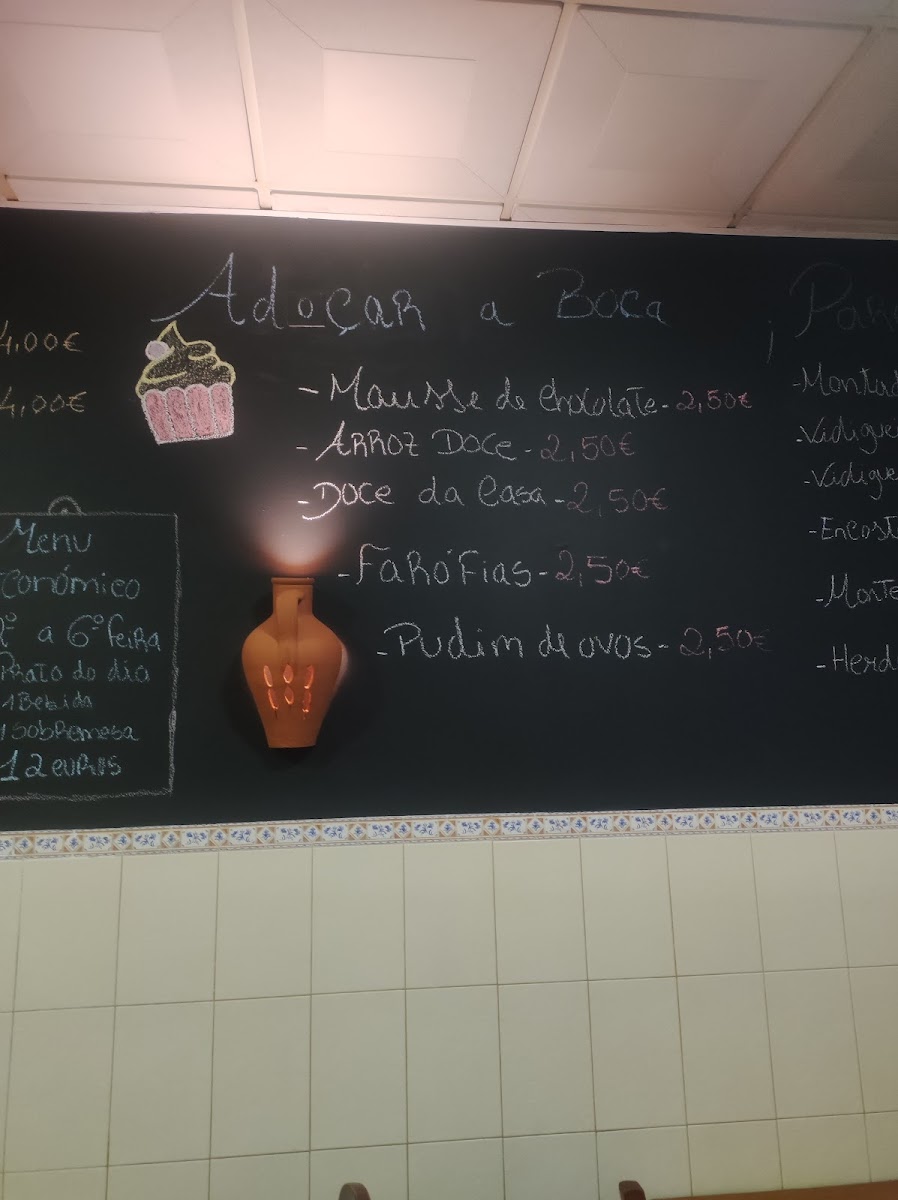 4,00€
4,00€
Menu
conómico
2º a 6º feira
Prato do dia
1 Bebida
1 Sobremesa
12 euros
Adoçar a Boca
- Mousse de chocolate - 2,50€
- Arroz Doce - 2,50€
- Doce da Casa - 2,50€
- Farófias - 2,50€
- Pudim de ovos - 2,50€